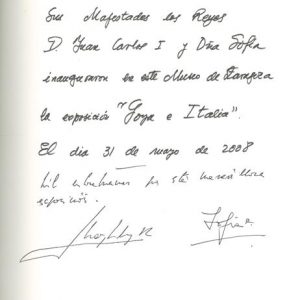 Sus Majestades los Reyes
D. Juan Carlos I y Dña Sofía
inauguraron en este Museo de Zaragoza
la exposición "Goya e Italia".
El día 31 de mayo de 2008
Mil enhorabuenas por esta maravillosa
exposición.
Juan Carlos R
Sofía R